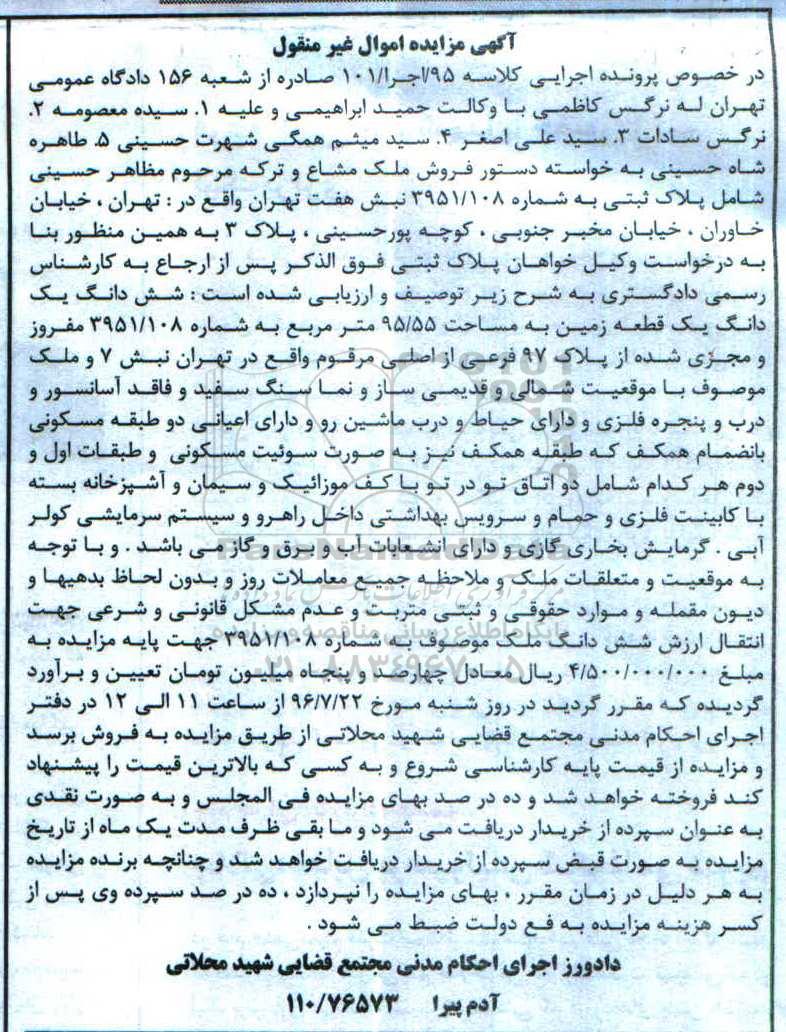 آگهی مزایده اموال غیر منقول
در خصوص پرونده اجرایی کلاسه ۹۵/اجرا/۱۰۱ صادره از شعبه ۱۵۶ دادگاه عمومی
تهران له نرگس کاظمی با وکالت حمید ابراهیمی و علیه ۱. سیده معصومه ۲.
نرگس سادات ۳. سید علی اصغر ۴. سید میثم همگی شهرت حسینی ۵. طاهره
شاه حسینی به خواسته دستور فروش ملک مشاع و ترکه مرحوم مظاهر حسینی
شامل پلاک ثبتی به شماره ۳۹۵۱/۱۰۸ نبش هفت تهران واقع در : تهران ، خیابان
خاوران ، خیابان مخبر جنوبی ، کوچه پورحسینی ، پلاک ۳ به همین منظور بنا
به درخواست وکیل خواهان پلاک ثبتی فوق الذکر پس از ارجاع به کارشناس
رسمی دادگستری به شرح زیر توصیف و ارزیابی شده است : شش دانگ یک
دانگ یک قطعه زمین به مساحت ۹۵/۵۵ متر مربع به شماره ۳۹۵۱/۱۰۸ مفروز
و مجزی شده از پلاک ۹۷ فرعی از اصلی مرقوم واقع در تهران نبش ۷ و ملک
موصوف با موقعیت شمالی و قدیمی ساز و نما سنگ سفید و فاقد آسانسور و
درب و پنجره فلزی و دارای حیاط و درب ماشین رو و دارای اعیانی دو طبقه مسکونی
بانضمام همکف که طبقه همکف نیز به صورت سوئیت مسکونی و طبقات اول و
دوم هر کدام شامل دو اتاق تو در تو با کف موزائیک و سیمان و آشپزخانه بسته
با کابینت فلزی و حمام و سرویس بهداشتی داخل راهرو و سیستم سرمایشی کولر
آبی . گرمایش بخاری گازی و دارای انشعابات آب و برق و گاز می باشد . و با توجه
به موقعیت و متعلقات ملک و ملاحظه جمیع معاملات روز و بدون لحاظ بدهیها و
دیون مقمله و موارد حقوقی و ثبتی متربت و عدم مشکل قانونی و شرعی جهت
انتقال ارزش شش دانگ ملک موصوف به شماره ۳۹۵۱/۱۰۸ جهت پایه مزایده به
مبلغ ۴/۵۰۰/۰۰۰/۰۰۰ ریال معادل چهارصد و پنجاه میلیون تومان تعیین و برآورد
گردیده که مقرر گردید در روز شنبه مورخ ۹۶/۷/۲۲ از ساعت ۱۱ الی ۱۲ در دفتر
اجرای احکام مدنی مجتمع قضایی شهید محلاتی از طریق مزایده به فروش برسد
و مزایده از قیمت پایه کارشناسی شروع و به کسی که بالاترین قیمت را پیشنهاد
کند فروخته خواهد شد و ده در صد بهای مزایده فی المجلس و به صورت نقدی
به عنوان سپرده از خریدار دریافت می شود و ما بقی ظرف مدت یک ماه از تاریخ
مزایده به صورت قبض سپرده از خریدار دریافت خواهد شد و چنانچه برنده مزایده
به هر دلیل در زمان مقرر ، بهای مزایده را نپردازد ، ده در صد سپرده وی پس از
کسر هزینه مزایده به فع دولت ضبط می شود .
دادورز اجرای احکام مدنی مجتمع قضایی شهید محلاتی
آدم پیرا ۱۱۰/۷۶۵۷۳
ParsNamadData
پایگاه اطلاع رسانی مناقصه و مزایده
۰۲۱-۸۸۳۴۹۶۷۰-۵